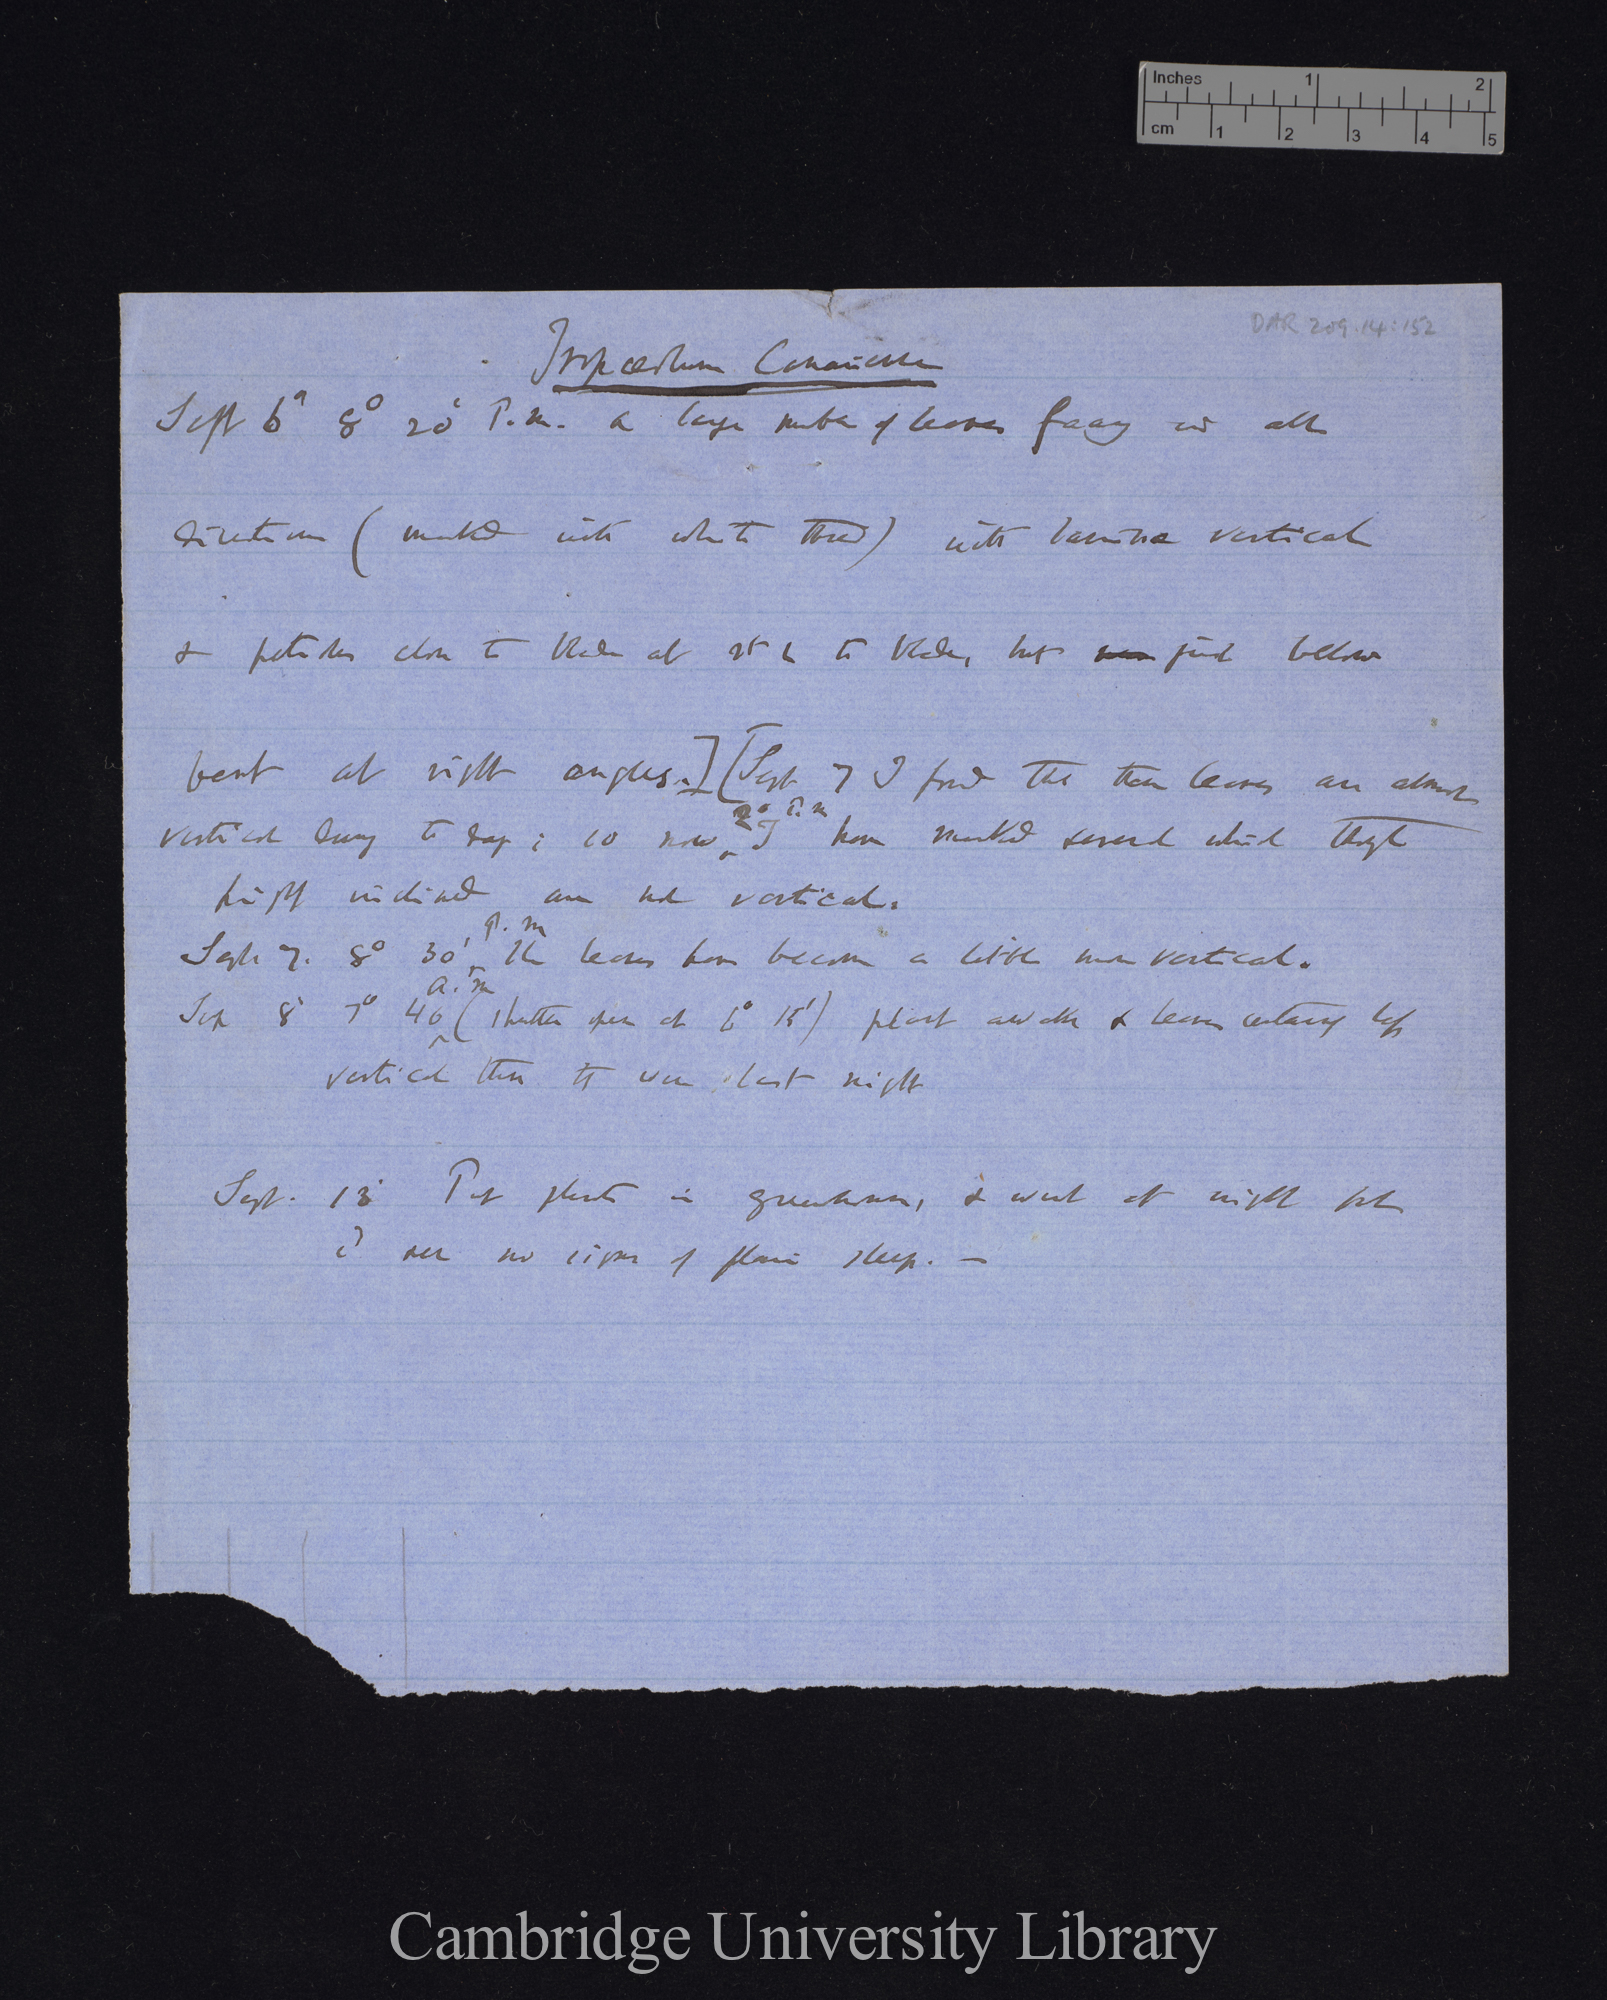 Inches 1 2
cm 1 2 3 4 5
DAR 209.14:152
Tropæolum Canariense
Sept 6° 8° 20' P.m. a large number of leaves facing in all
directions (marked with white thread) with lamina vertical
& petioles close to blade at rt L to blade, but just below
bent at right angles.] [Sept 7 I find that these leaves are almost
vertical during the day; so now 2° P.m I have marked several which though
highly inclined are not vertical.
Sept 7. 8° 30' P.m the leaves have become a little more vertical.
Sep 8 7° 40 a.m (shutter open at 6° 15') plant awake & leaves certainly less
vertical than they were last night
Sept. 13 Put plants in greenhouse, & went at night but
I see no signs of plain sleep. —
Cambridge University Library